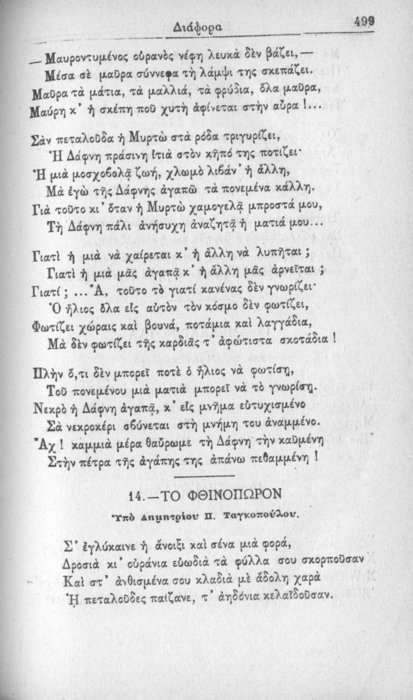 Διάφορα
499
— Μαυροντυμένος οὐρανὸς νέφη λευκὰ δὲν βάζει, —
Μέσα σὲ μαῦρα σύννεφα τὴ λάμψι της σκεπάζει.
Μαῦρα τὰ μάτια, τὰ μαλλιά, τὰ φρύδια, ὅλα μαῦρα,
Μαύρη κ᾿ ἡ σκέπη ποῦ χυτὴ ἀφίνεται στὴν αὔρα !...
Σὰν πεταλοῦδα ἡ Μυρτὼ στὰ ρόδα τριγυρίζει,
Ἡ Δάφνη πράσινη ἰτιὰ στὸν κῆπό της ποτίζει·
Ἡ μιὰ μοσχοβολᾷ ζωή, χλωμὸ λιβάν᾿ ἡ ἄλλη,
Μὰ ἐγὼ τῆς Δάφνης ἀγαπῶ τὰ πονεμένα κάλλη.
Γιὰ τοῦτο κι᾿ ὅταν ἡ Μυρτὼ χαμογελᾷ μπροστά μου,
Τὴ Δάφνη πάλι ἀνήσυχη ἀναζητᾷ ἡ ματιά μου...
Γιατί ἡ μιὰ νὰ χαίρεται κ᾿ ἡ ἄλλη νὰ λυπῆται ;
Γιατί ἡ μιὰ μᾶς ἀγαπᾷ κ᾿ ἡ ἄλλη μᾶς ἀρνεῖται ;
Γιατί ; ...Ἄ, τοῦτο τὸ γιατί κανένας δὲν γνωρίζει·
Ὁ ἥλιος ὅλα εἰς αὐτὸν τὸν κόσμο δὲν φωτίζει,
Φωτίζει χώραις καὶ βουνά, ποτάμια καὶ λαγγάδια,
Μὰ δὲν φωτίζει τῆς καρδιᾶς τ᾿ ἀφώτιστα σκοτάδια !
Πλὴν ὅ,τι δὲν μπορεῖ ποτὲ ὁ ἥλιος νὰ φωτίσῃ,
Τοῦ πονεμένου μιὰ ματιὰ μπορεῖ νὰ τὸ γνωρίσῃ.
Νεκρὸ ἡ Δάφνη ἀγαπᾷ, κ᾿ εἰς μνῆμα εὐτυχισμένο
Σὰ νεκροκέρι σβύνεται στὴ μνήμη του ἀναμμένο.
Ἄχ ! καμμιὰ μέρα θαὔρωμε τὴ Δάφνη τὴν καϋμένη
Στὴν πέτρα τῆς ἀγάπης της ἀπάνω πεθαμμένη !
14.—ΤΟ ΦΘΙΝΟΠΩΡΟΝ
Ὑπὸ Δημητρίου Π. Ταγκοπούλου.
Σ᾿ ἐγλύκαινε ἡ ἄνοιξι καὶ σένα μιὰ φορά,
Δροσιὰ κι᾿ οὐράνια εὐωδιὰ τὰ φύλλα σου σκορποῦσαν
Καὶ στ᾿ ἀνθισμένα σου κλαδιὰ μὲ ἄδολη χαρὰ
Ἡ πεταλοῦδες παίζανε, τ᾿ ἀηδόνια κελαϊδοῦσαν.